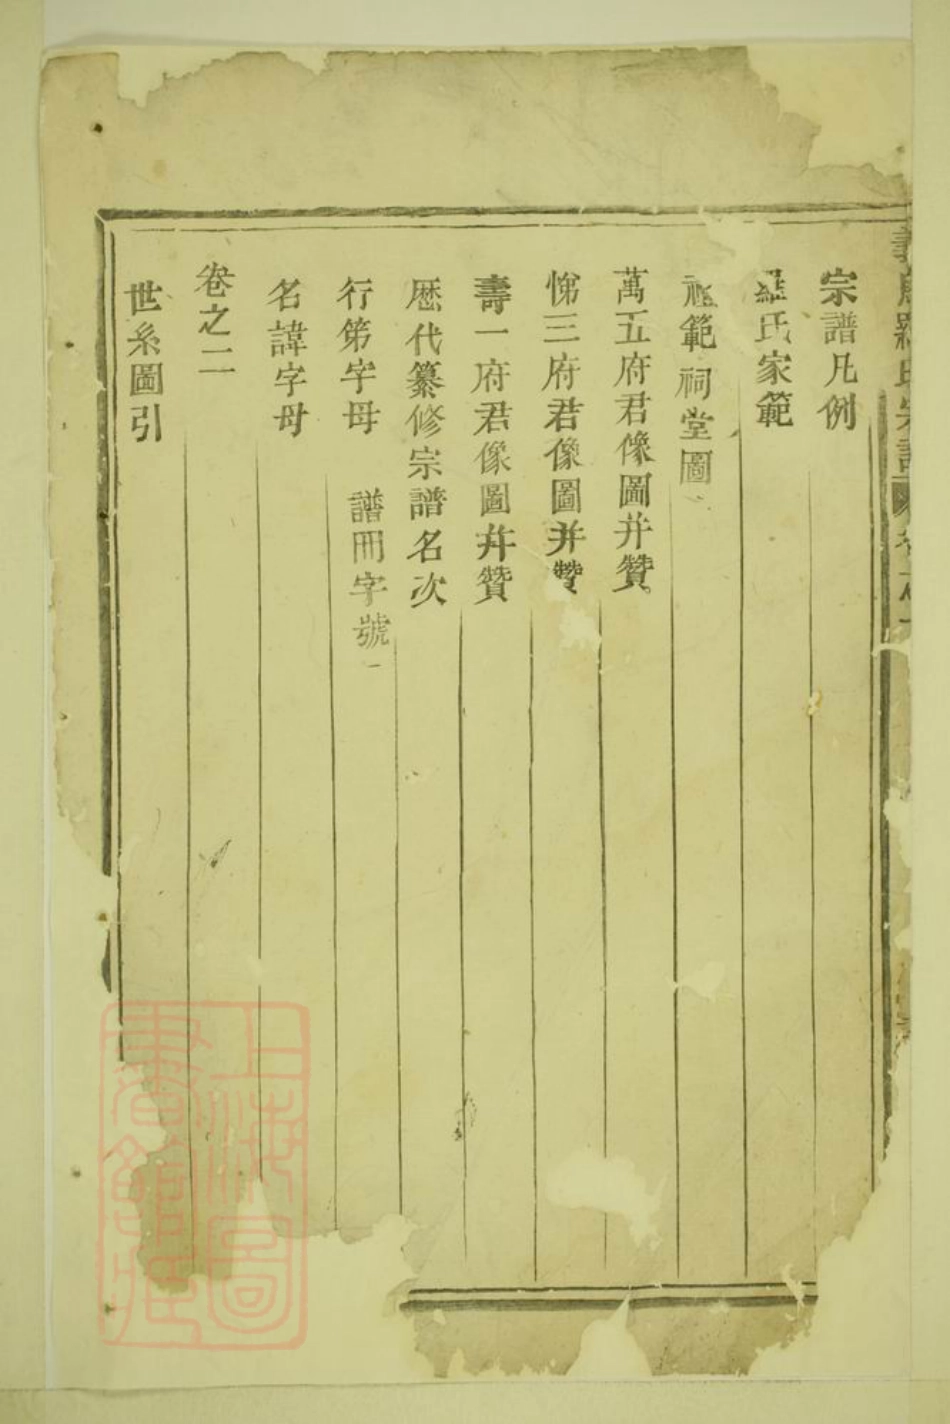 宗譜凡例
羅氏家範
範祠堂圖
萬五府君像圖并贊
悌三府君像圖并贊
壽一府君像圖并贊
歴代纂修宗譜名次
行第字母　譜冊字號
名諱字母
卷之二
世系圖引
上海圖書館藏